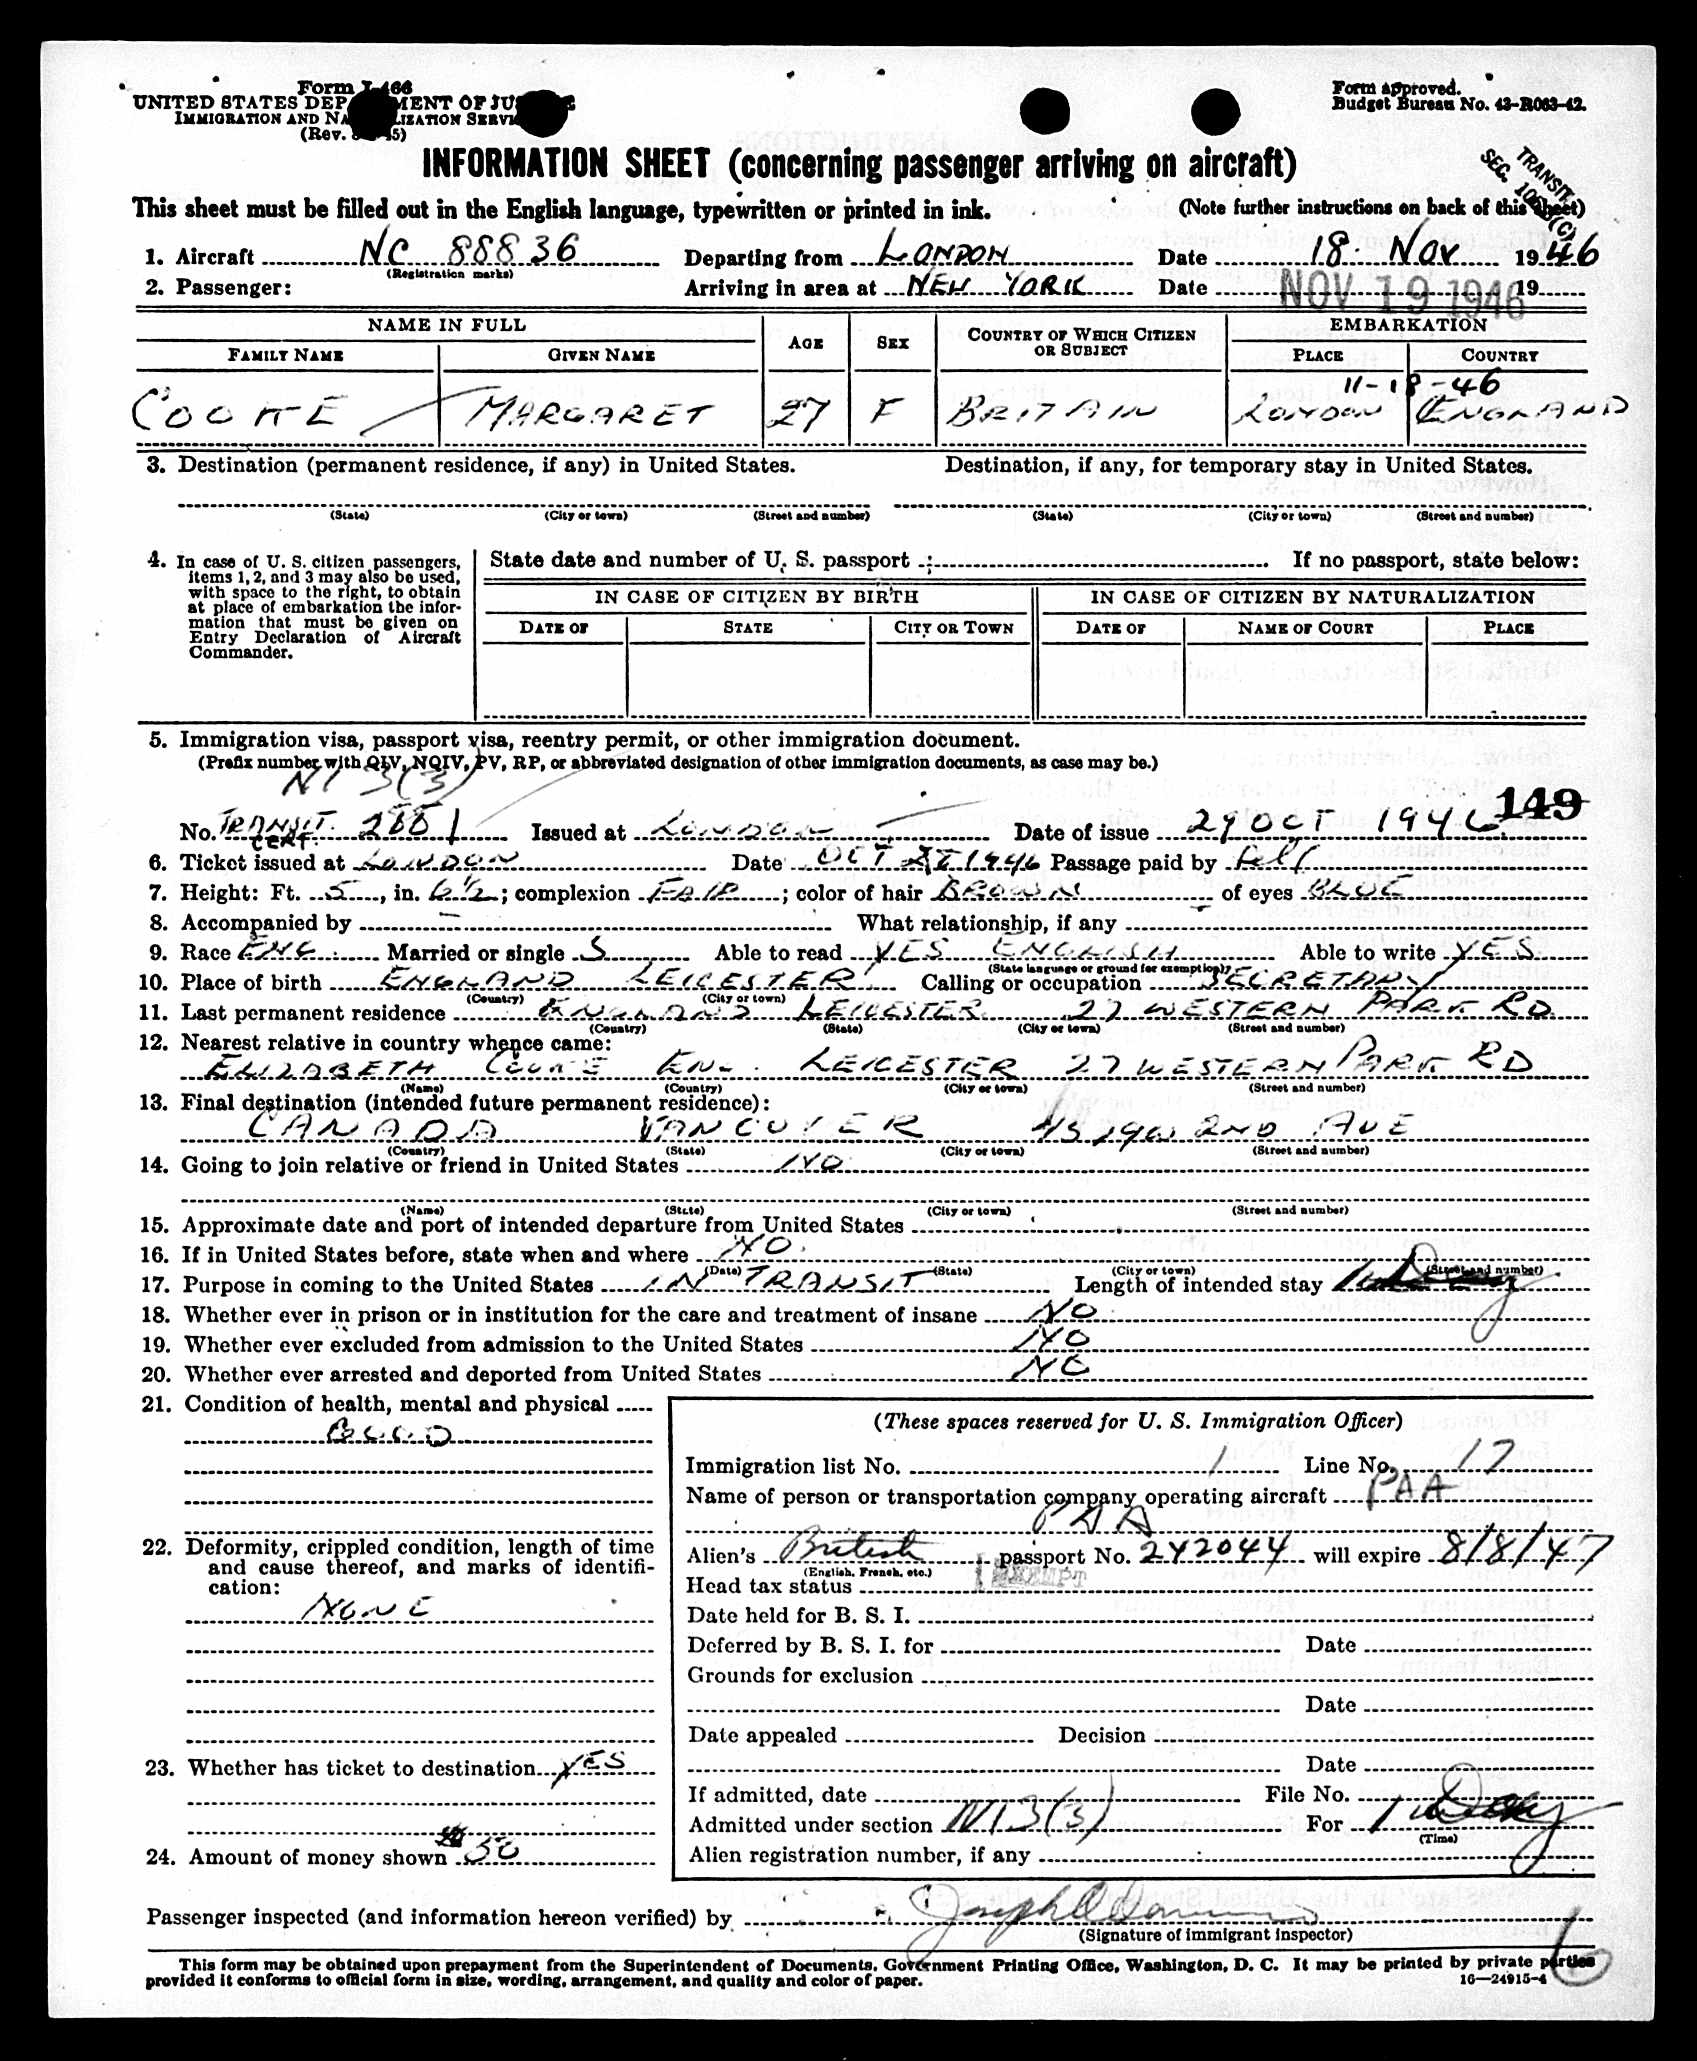 Form I-466
UNITED STATES DEPARTMENT OF JUSTICE
IMMIGRATION AND NATURALIZATION SERVICE
(Rev. 45)
Form approved.
Budget Bureau No. 43-R063-42.
TRANSIT
SEC. (C)
INFORMATION SHEET (concerning passenger arriving on aircraft)
This sheet must be filled out in the English language, typewritten or printed in ink. (Note further instructions on back of this sheet)
1. Aircraft NC 88836 Departing from LONDON Date 18 NOV 1946
(Registration marks)
2. Passenger: Arriving in area at NEW YORK Date NOV 19 1946 19
NAME IN FULL AGE SEX COUNTRY OF WHICH CITIZEN OR SUBJECT EMBARKATION
FAMILY NAME GIVEN NAME PLACE COUNTRY
11-18-46
COOKE MARGARET 27 F BRITAIN LONDON ENGLAND
3. Destination (permanent residence, if any) in United States. Destination, if any, for temporary stay in United States.
(State) (City or town) (Street and number) (State) (City or town) (Street and number)
4. In case of U. S. citizen passengers, items 1, 2, and 3 may also be used, with space to the right, to obtain at place of embarkation the information that must be given on Entry Declaration of Aircraft Commander.
State date and number of U. S. passport If no passport, state below:
IN CASE OF CITIZEN BY BIRTH IN CASE OF CITIZEN BY NATURALIZATION
DATE OF STATE CITY OR TOWN DATE OF NAME OF COURT PLACE
5. Immigration visa, passport visa, reentry permit, or other immigration document.
(Prefix number with QIV, NQIV, PV, RP, or abbreviated designation of other immigration documents, as case may be.)
NI 3(3)
149
No. TRANSIT CERT. 2881 Issued at LONDON Date of issue 29 OCT 1946
6. Ticket issued at LONDON Date OCT 1946 Passage paid by Self
7. Height: Ft. 5, in. 6½; complexion FAIR; color of hair BROWN of eyes BLUE
8. Accompanied by - What relationship, if any -
9. Race ENG Married or single S Able to read YES ENGLISH Able to write YES
(State language or ground for exemption)
10. Place of birth ENGLAND LEICESTER Calling or occupation SECRETARY
(Country) (City or town)
11. Last permanent residence ENGLAND LEICESTER 27 WESTERN PARK RD
(Country) (State) (City or town) (Street and number)
12. Nearest relative in country whence came:
ELIZABETH COOKE ENG. LEICESTER 27 WESTERN PARK RD
(Name) (Country) (City or town) (Street and number)
13. Final destination (intended future permanent residence):
CANADA VANCUVER 2ND AVE
(Country) (State) (City or town) (Street and number)
14. Going to join relative or friend in United States NO
(Name) (State) (City or town) (Street and number)
15. Approximate date and port of intended departure from United States
16. If in United States before, state when and where NO
(Date) (State) (City or town) (Street and number)
17. Purpose in coming to the United States IN TRANSIT Length of intended stay 1 Day
18. Whether ever in prison or in institution for the care and treatment of insane NO
19. Whether ever excluded from admission to the United States NO
20. Whether ever arrested and deported from United States NO
21. Condition of health, mental and physical
GOOD
22. Deformity, crippled condition, length of time and cause thereof, and marks of identification:
NONE
23. Whether has ticket to destination YES
24. Amount of money shown 50
(These spaces reserved for U. S. Immigration Officer)
Immigration list No. 1 Line No. 17
Name of person or transportation company operating aircraft PAA
PAA
Alien's British passport No. 242044 will expire 8/8/47
(English, French, etc.)
Head tax status EXEMPT
Date held for B. S. I.
Deferred by B. S. I. for Date
Grounds for exclusion
Date
Date appealed Decision
Date
If admitted, date File No.
Admitted under section NI 3(3) For 1 Day
(Time)
Alien registration number, if any
Passenger inspected (and information hereon verified) by Joseph
(Signature of immigrant inspector)
This form may be obtained upon prepayment from the Superintendent of Documents, Government Printing Office, Washington, D. C. It may be printed by private parties
provided it conforms to official form in size, wording, arrangement, and quality and color of paper. 16—24915-4